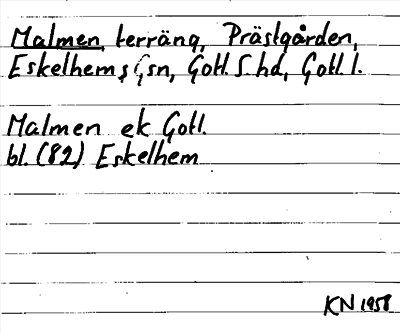 Malmen, terräng, Prästgården,
Eskelhems sn, Gotl. S. hd, Gotl. l.
Malmen ek Gotl.
bl. (82) Eskelhem
KN 1958